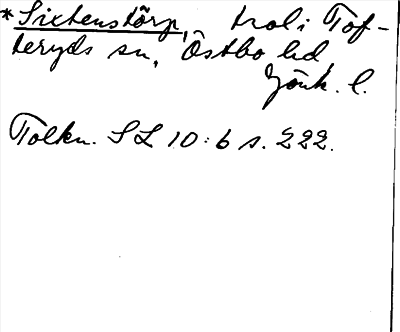 *Sixtenstörp, trol. i Tof-
teryds sn, Östbo hd
Jönk. l.
Tolkn. SL 10:6 s. 222.